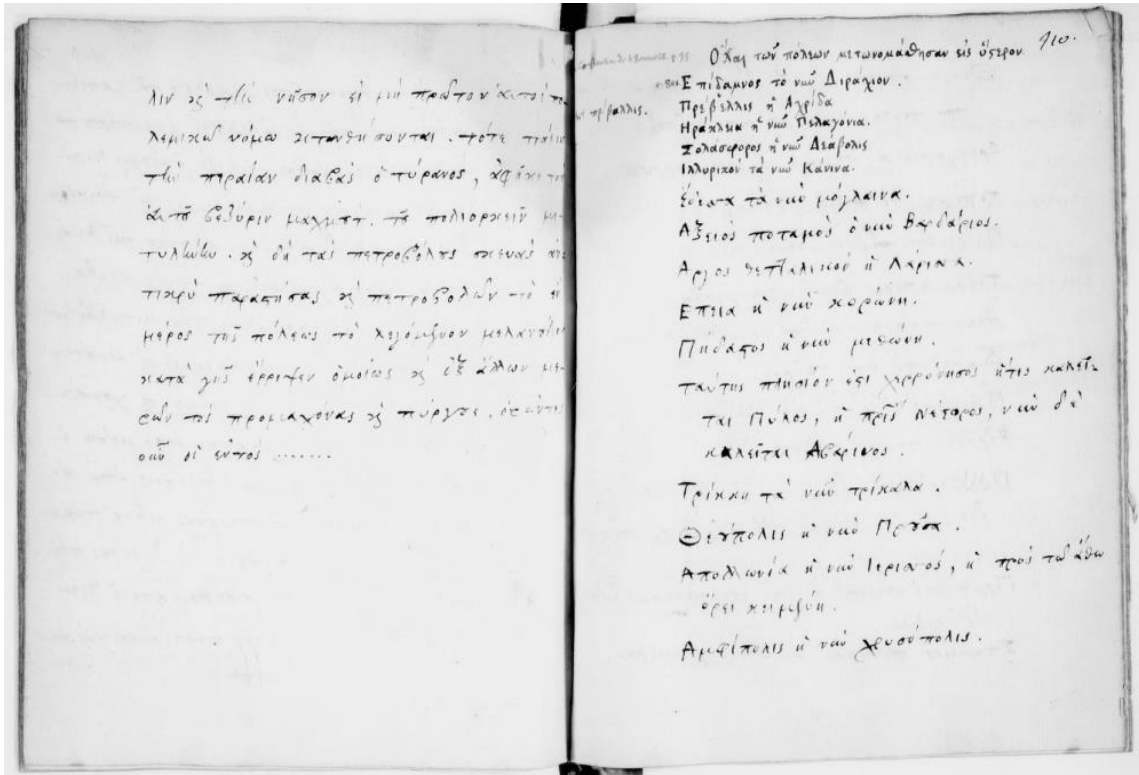 λιν ϗ τὴν νῆσον εἰ μὴ πρῶτον αὐτοὶ πο
λεμικῶ νόμω
τὴν περαίαν διαβὰς ὁ τύρανος, ἀφῆκε τὸν
μαχμπτ. τȣ πολιορκεῖν
ϗ δὴ τὰς πετροβόλȣς σκευὰς ἀν
τικρὺ παραστήσας ϗ πετροβολῶν τὸ ἓν
μέρος τῆς πόλεως τὸ λεγόμενον
κατὰ γῆς ἔρριψεν ὁμοίως ϗ ἐξ ἄλλων με-
ρῶν τὰς προμαχόνας ϗ πύργȣς.
οὖν οἱ ἐντὸς .......
410.
Ὅσαι τῶν πόλεων μετωνομάσθησαν εἰς ὕστερον
Επίδαμνος τὸ νῦν Διράχιον.
πρίβαλλις. Πρέβελλις ἡ Αχρίδα
Ηράκλεια ἡ νῦν Πελαγόνια.
Σολάσφορος ἡ νῦν Δεάβολις
Ιλλυρικὸν τὰ νῦν Κάνινα.
Ἔδεσσα τὰ νῦν μόγλαινα.
Αξειὸς ποταμὸς ὁ νῦν Βαρδάριος.
Αργος θετταλικὸν ἡ Λάρισσα.
Επεια ἡ νῦν κορώνη.
Πήδασος ἡ νῦν μεθώνη.
ταύτης πλησίον ἐστὶ χερρόνησος ἥτις καλεῖ-
ται Πύλος, ἡ πρὶν Νέστορος, νῦν δὲ
καλεῖται Αβαρίνος.
Τρίκκη τὰ νῦν τρίκαλα.
Θεȣπολις ἡ νῦν Πρȣσα.
Απολλωνία ἡ νῦν Ιερισσός, ἡ πρὸς τῶ ἄθω
ὄρει κειμένη.
Αμφίπολις ἡ νῦν χρυσόπολις.